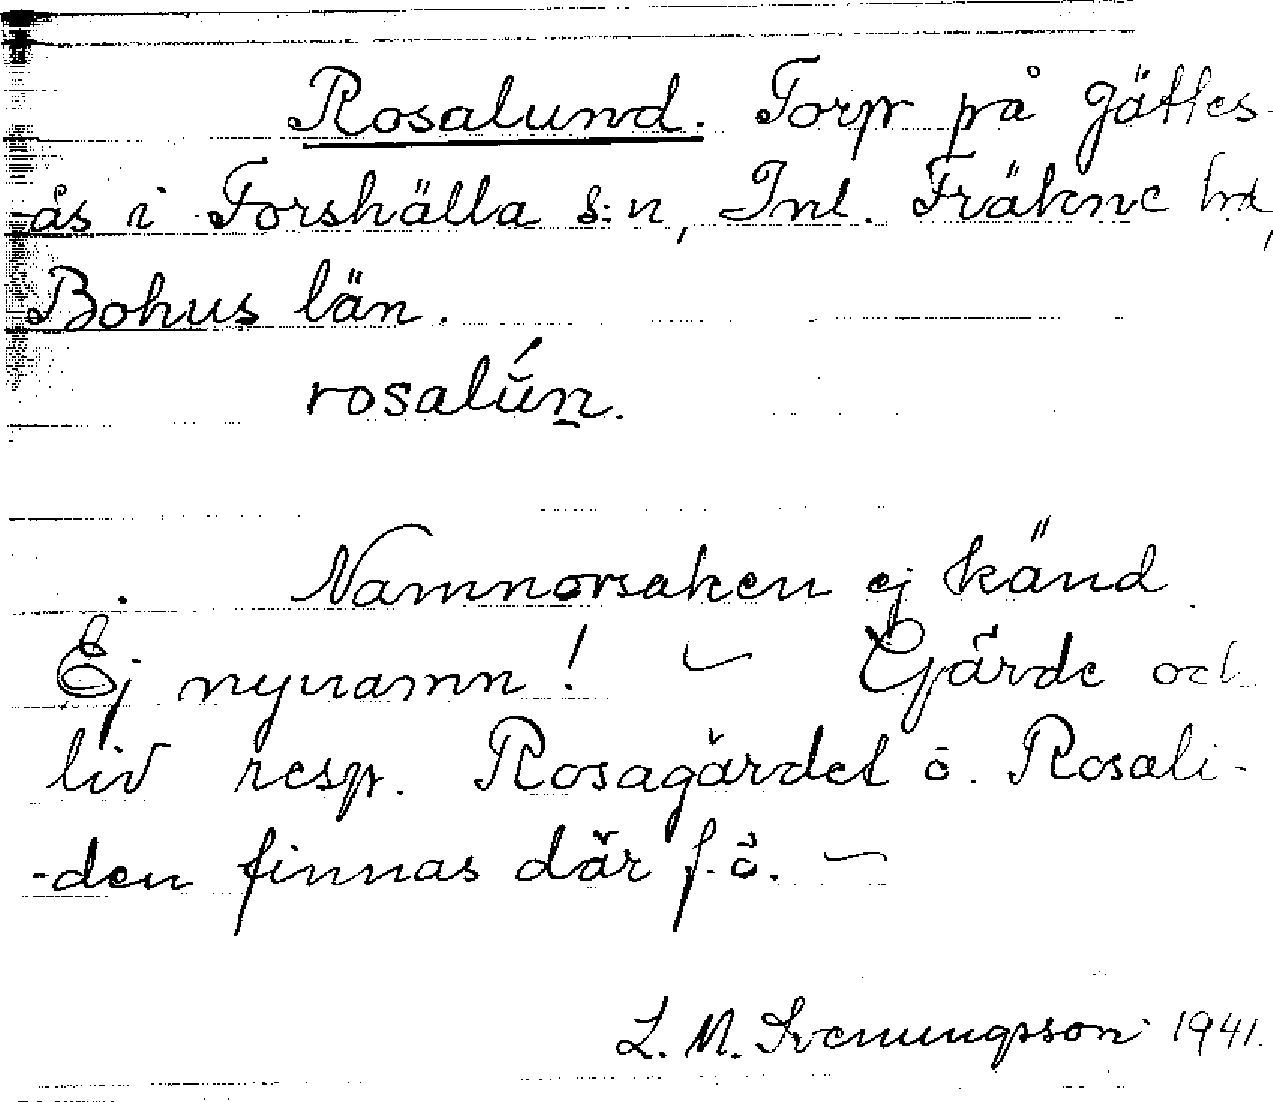 Rosalund. Torp på Gättes-
ås i Forshälla s:n, Inl. Fräkne hd,
Bohus län.
rosalún.
Namnorsaken ej känd.
Ej nynamn! — Gärde och
lid resp. Rosagärdet o. Rosali-
-den finnas där f. ö. —
L. M. Svenungsson 1941.